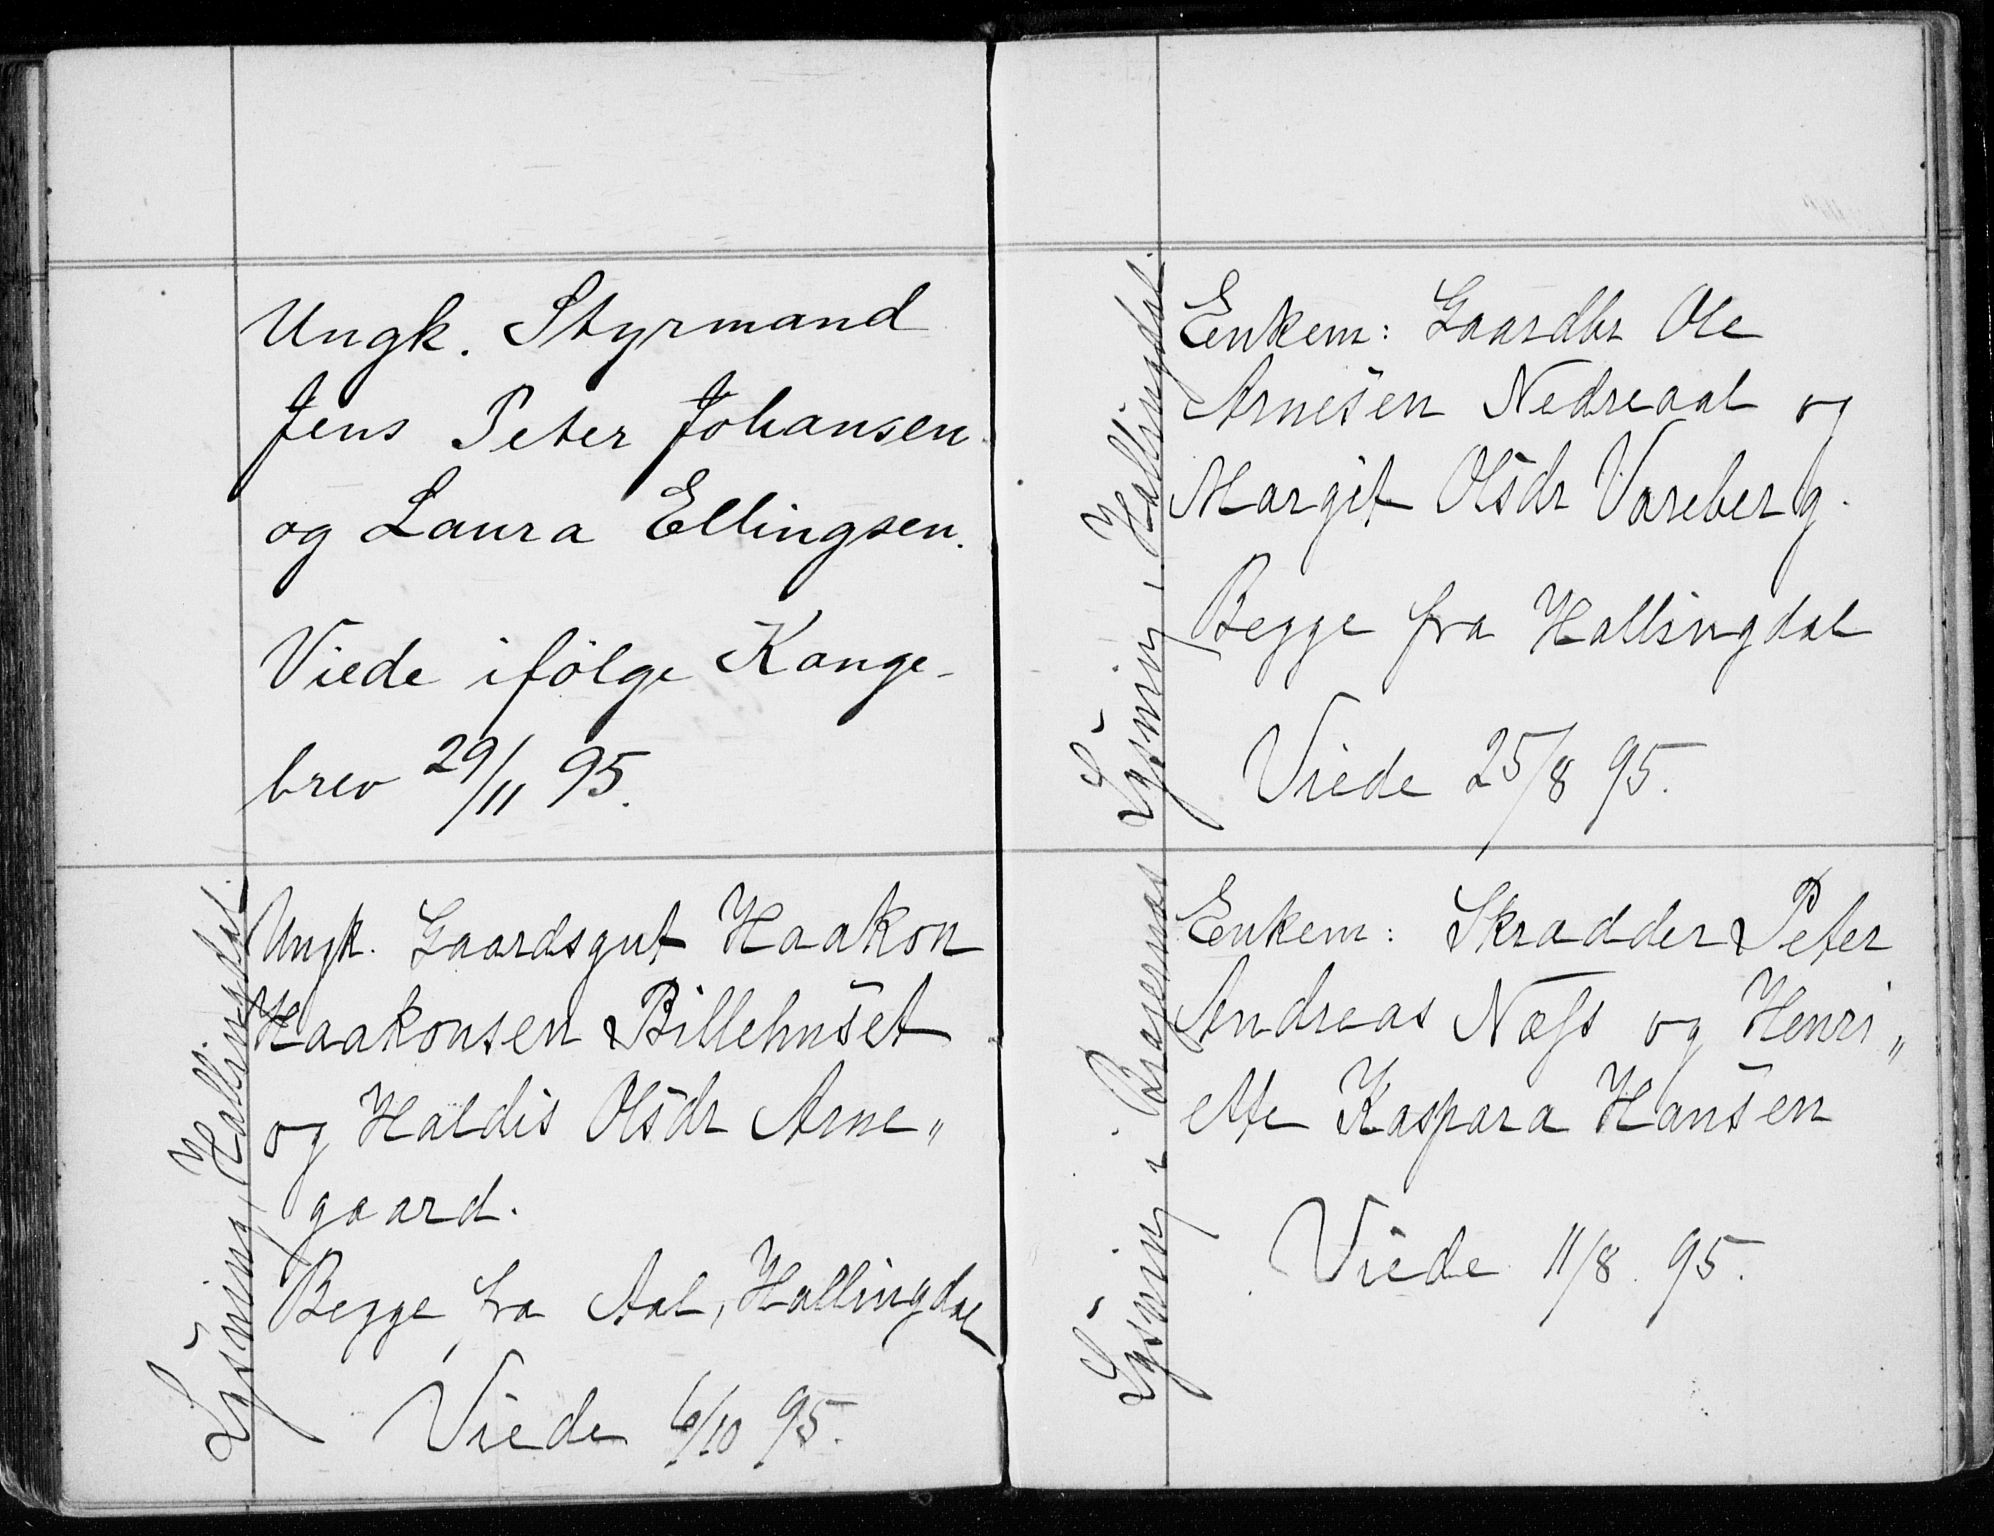 Ungk. Styrmand
Jens Peter Johansen
og Laura Ellingsen.
Viede ifölge Konge-
brev 29/11 95.
Lysning, Hallingdal.
Ungk. Gaardsgut Haakon
Haakonsen Billehuset
og Haldis Olsdr Arne„
gaard.
Begge fra Aal, Hallingdal
Viede 6/10 95.
Lysning, Hallingdal.
Enkem: Gaardbr Ole
Arnesen Nedreaal og
Margit Olsdr Vareberg.
Begge fra Hallingdal
Viede 25/8 95.
Lysning i Bragernæs
Enkem: Skrædder Peter
Andreas Næss og Henri„
ette Kaspara Hansen
Viede 11/8. 95.